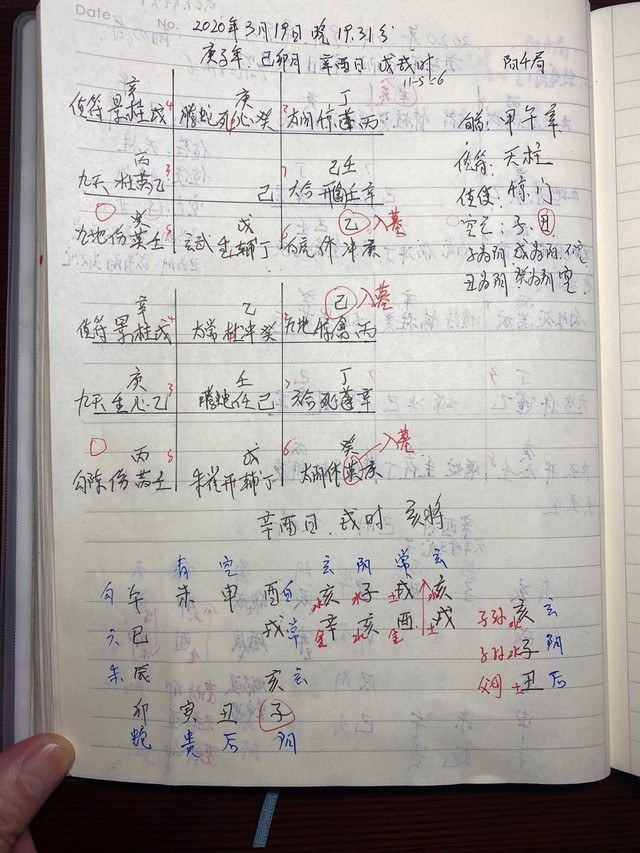 Date
No.
2020年3月19日晚 19:31分
庚子年 己卯月 辛酉日 戊戌时 阴4局
11-5=6
辛 庚 丁
值符 景柱戊 4 腾蛇死心癸 太阴惊蓬丙 2
旬首: 甲午辛
值符: 天柱
值使: 惊门
空亡: 子.丑
子为阴 戌为阳.不空
丑为阴 癸为阴 空
丙 己壬
九天 杜芮乙 3 己 六合 开任辛 7
癸 戊 乙 入墓
九地伤英壬 8 玄武 生辅丁 白虎 休冲庚 6
辛 乙 己 入墓
值符 景柱戊 4 太常 杜冲癸 九地 惊禽丙 2
庚 壬 丁
九天 生心乙 3 腾蛇任己 六合 死蓬辛 7
丙 戊 癸 入墓
勾陈 伤芮壬 8 朱雀开辅丁 太阴休英庚 6
辛酉日. 戌时 亥将
青 空 玄 阴 常 玄
白 午 未 申 酉 白 水亥 水子 土戌 亥
六 巳 戌 常 金辛 水亥 金酉 土戌
朱 辰 亥 玄
卯 寅 丑 子
蛇 贵 后 阴
子孙 水亥 玄
子孙 水子 阴
父母 土丑 后